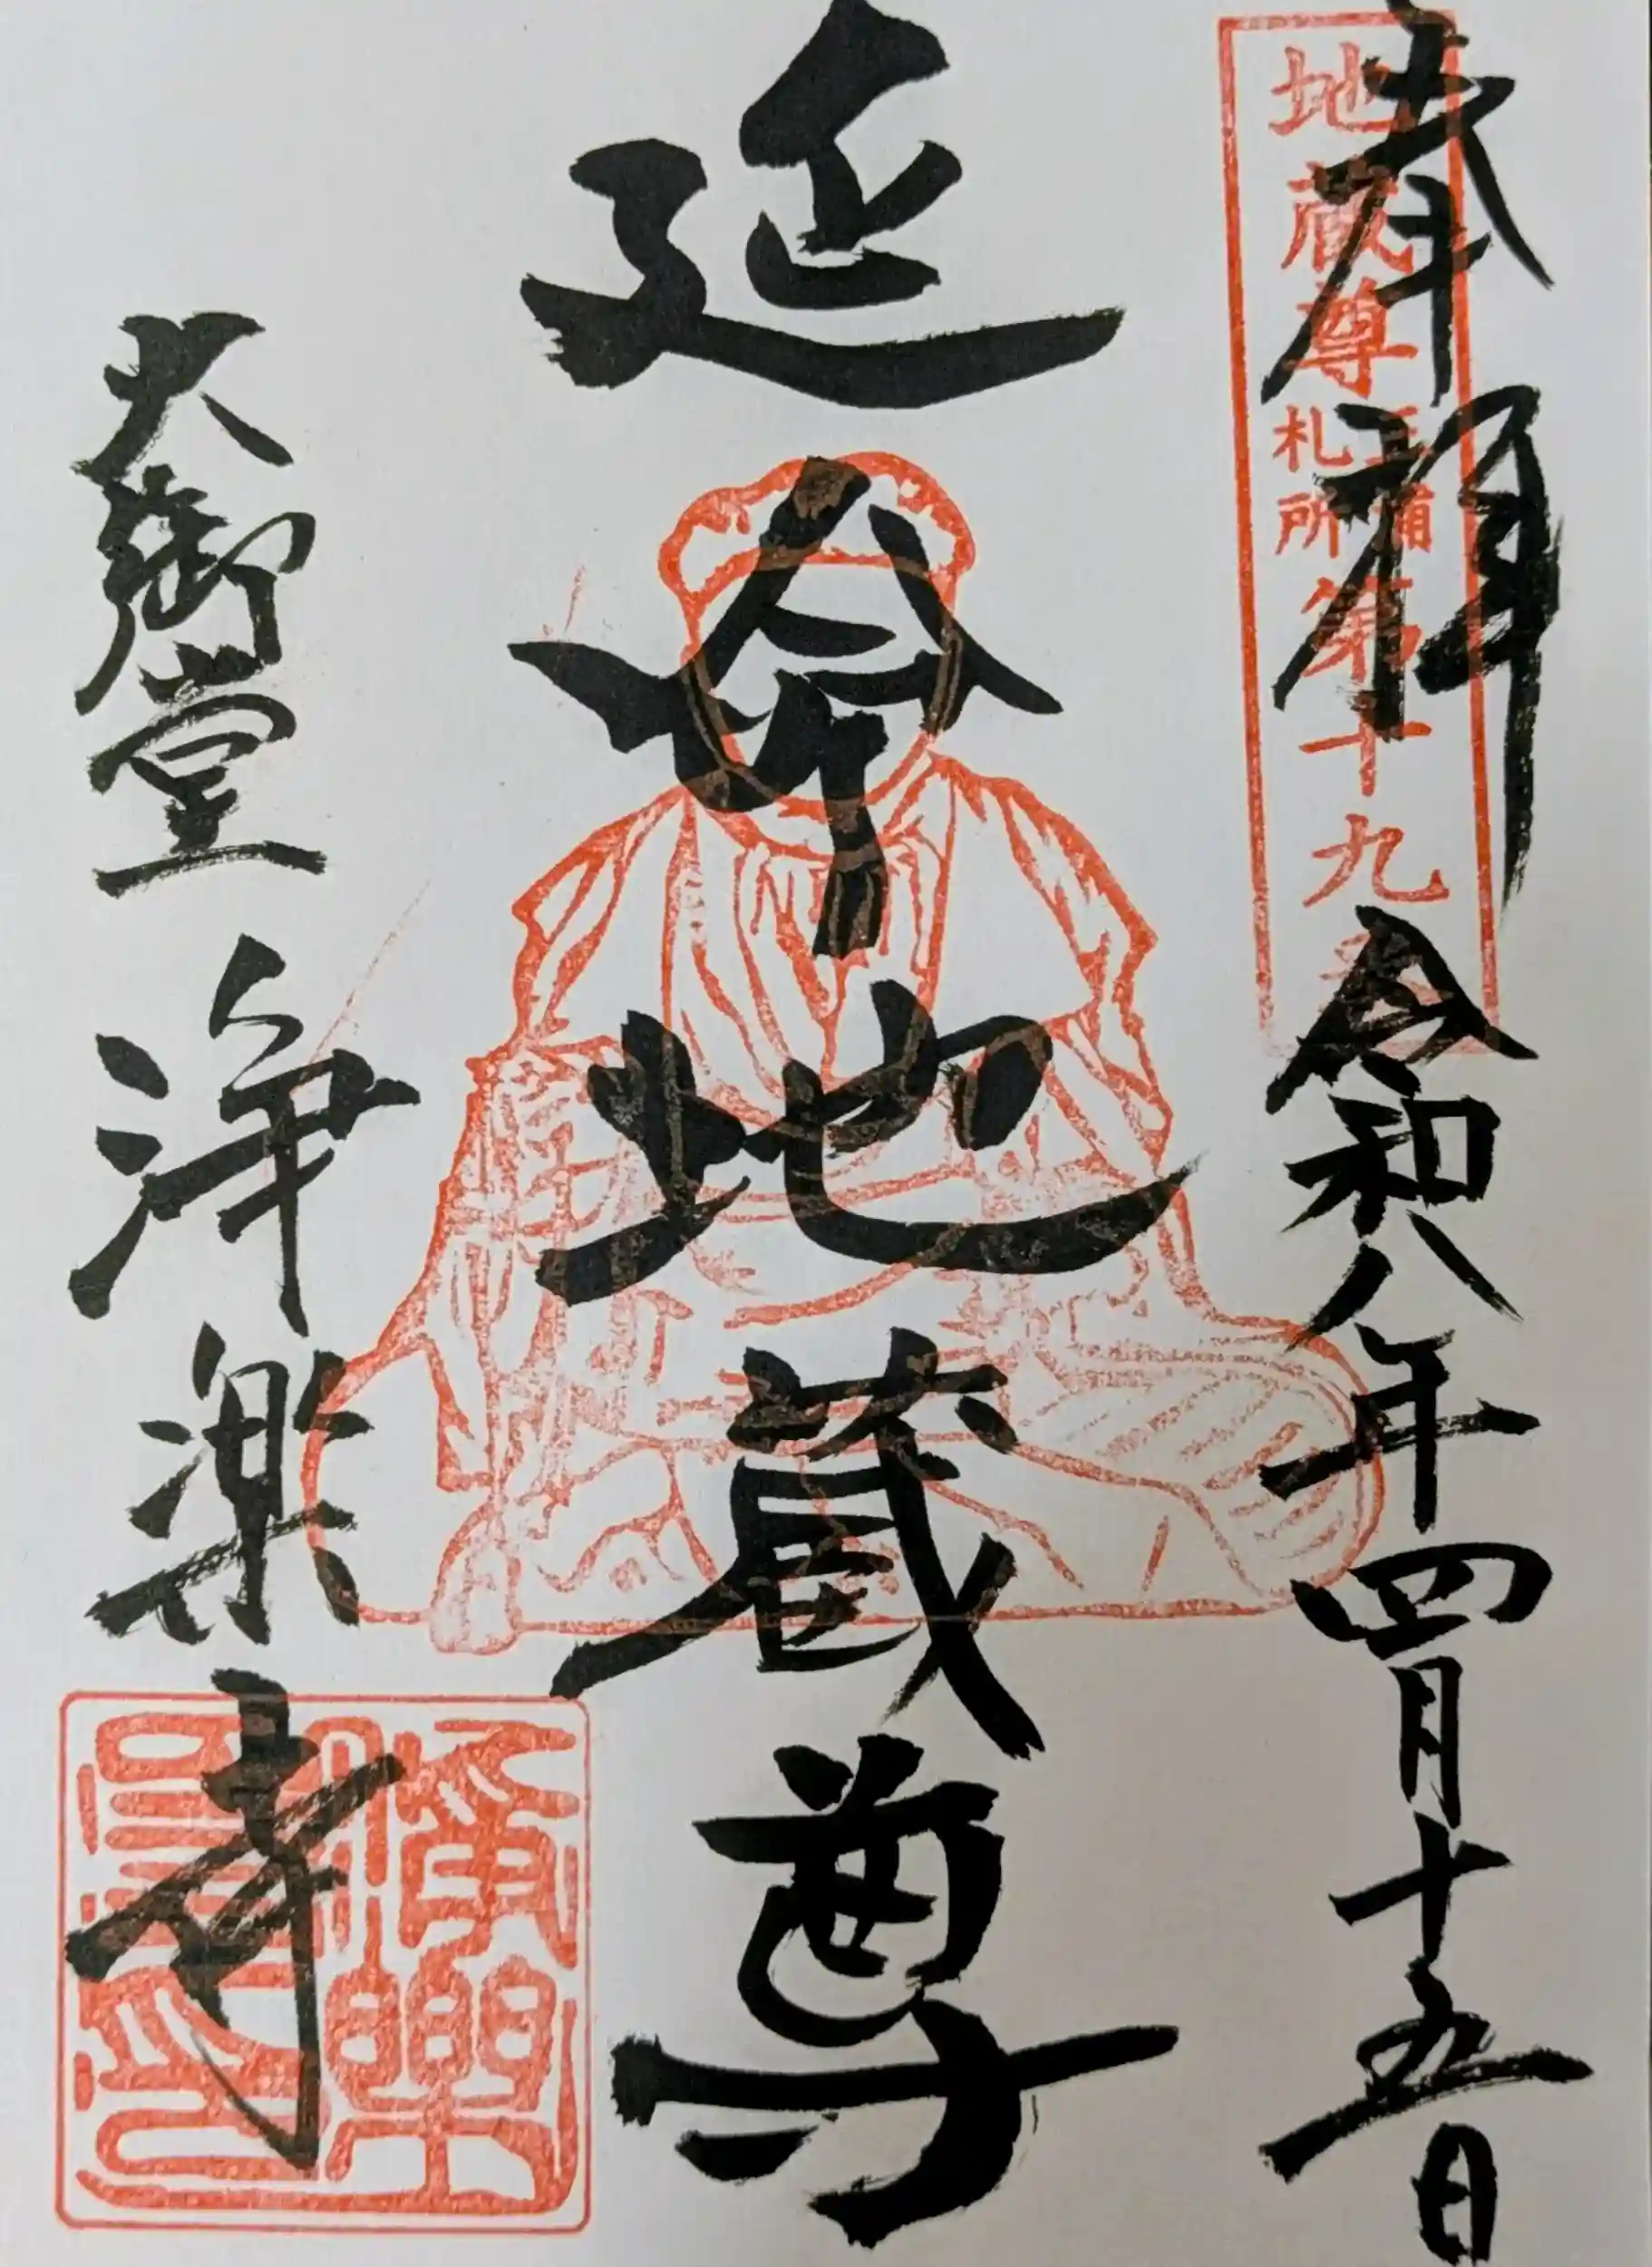 奉拝 令和八年四月十五日
地蔵尊
三浦
札所
第十九
延命地蔵尊
大御堂 浄楽寺